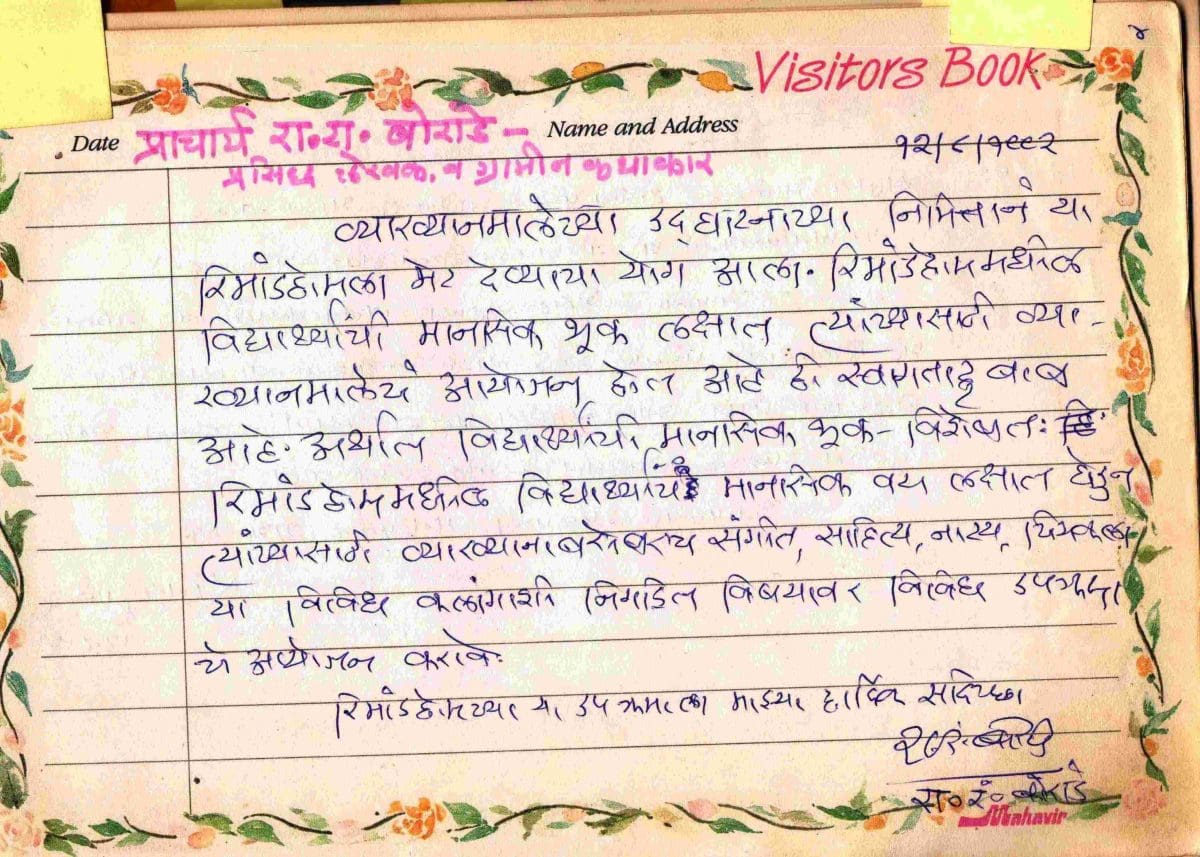 ४
Visitors Book
Date प्राचार्य रा.रा. बोराडे – Name and Address
१२/८/१९९२
प्रसिध्द लेखक, व ग्रामीन कथाकार
व्याख्यानमालेच्या उद्घाटनाच्या निमित्तानं या
रिमांडहोमला भेट देण्याचा योग आला. रिमांडहोममधील
विद्यार्थ्यांची मानसिक भूक लक्षात त्यांच्यासाठी व्या-
ख्यानमालेचं आयोजन होत आहे ही स्वागतार्ह बाब
आहे. अर्थात विद्यार्थ्यांची मानसिक भूक – विशेषतः
रिमांडहोममधील विद्यार्थ्यांचं मानसिक वय लक्षात घेऊन
त्यांच्यासाठी व्याख्यानाबरोबरच संगीत, साहित्य, नाट्य, चित्रकला
या विविध कलांगाशी निगडित विषयावर विविध उपक्रमा
चे आयोजन करावे.
रिमांडहोमच्या या उपक्रमाला माझ्या हार्दिक सदिच्छा
रा० रं० बोराडे
Mahavir